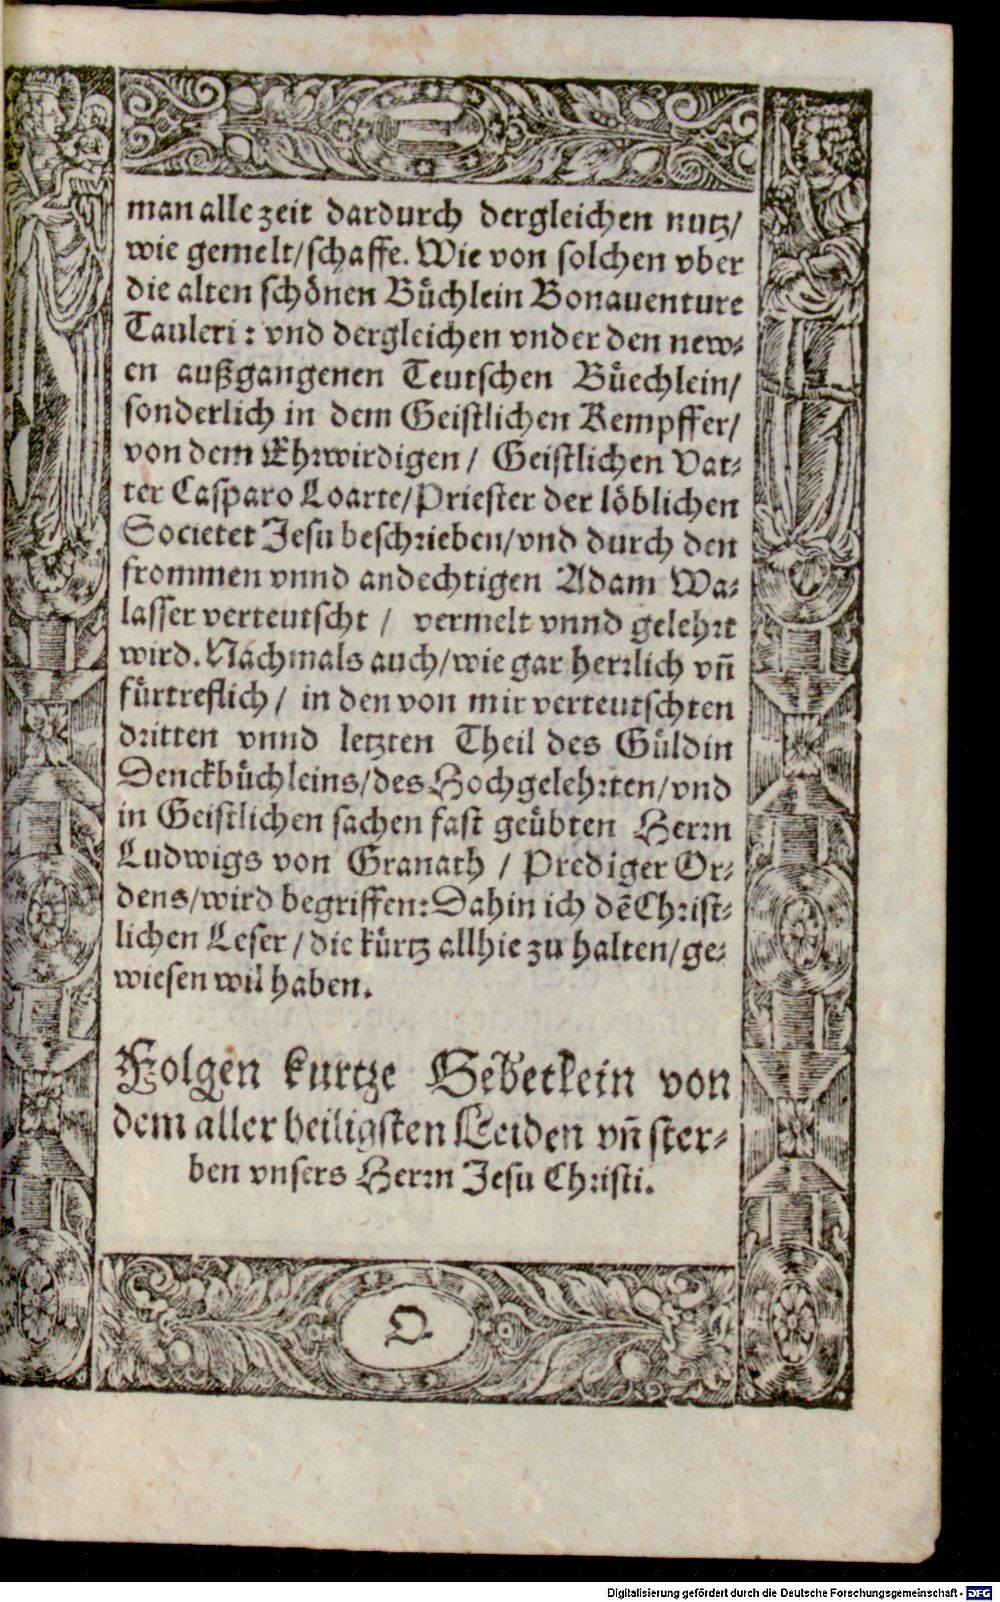 man alle zeit dardurch dergleichen nutz/
wie gemelt/schaffe. Wie von solchen vber
die alten schönen Büchlein Bonauenture
Tauleri: vnd dergleichen vnder den new⸗
en außgangenen Teutschen Büechlein/
sonderlich in dem Geistlichen Kempffer/
von dem Ehrwirdigen / Geistlichen Vat⸗
ter Casparo Loarte/Priester der löblichen
Societet Jesu beschrieben/vnd durch den
frommen vnnd andechtigen Adam Wa⸗
lasser verteutscht / vermelt vnnd gelehrt
wird. Nachmals auch/wie gar herrlich vñ
fürtreflich / in den von mir verteutschten
dritten vnnd letzten Theil des Güldin
Denckbüchleins/des Hochgelehrten/vnd
in Geistlichen sachen fast geübten Herrn
Ludwigs von Granath / Prediger Or⸗
dens/wird begriffen: Dahin ich dē Christ⸗
lichen Leser / die kürtz allhie zu halten/ge⸗
wiesen wil haben.
Folgen kurtze Gebetlein von
dem aller heiligsten Leiden vñ ster⸗
ben vnsers Herrn Jesu Christi.
D
Digitalisierung gefördert durch die Deutsche Forschungsgemeinschaft - DFG